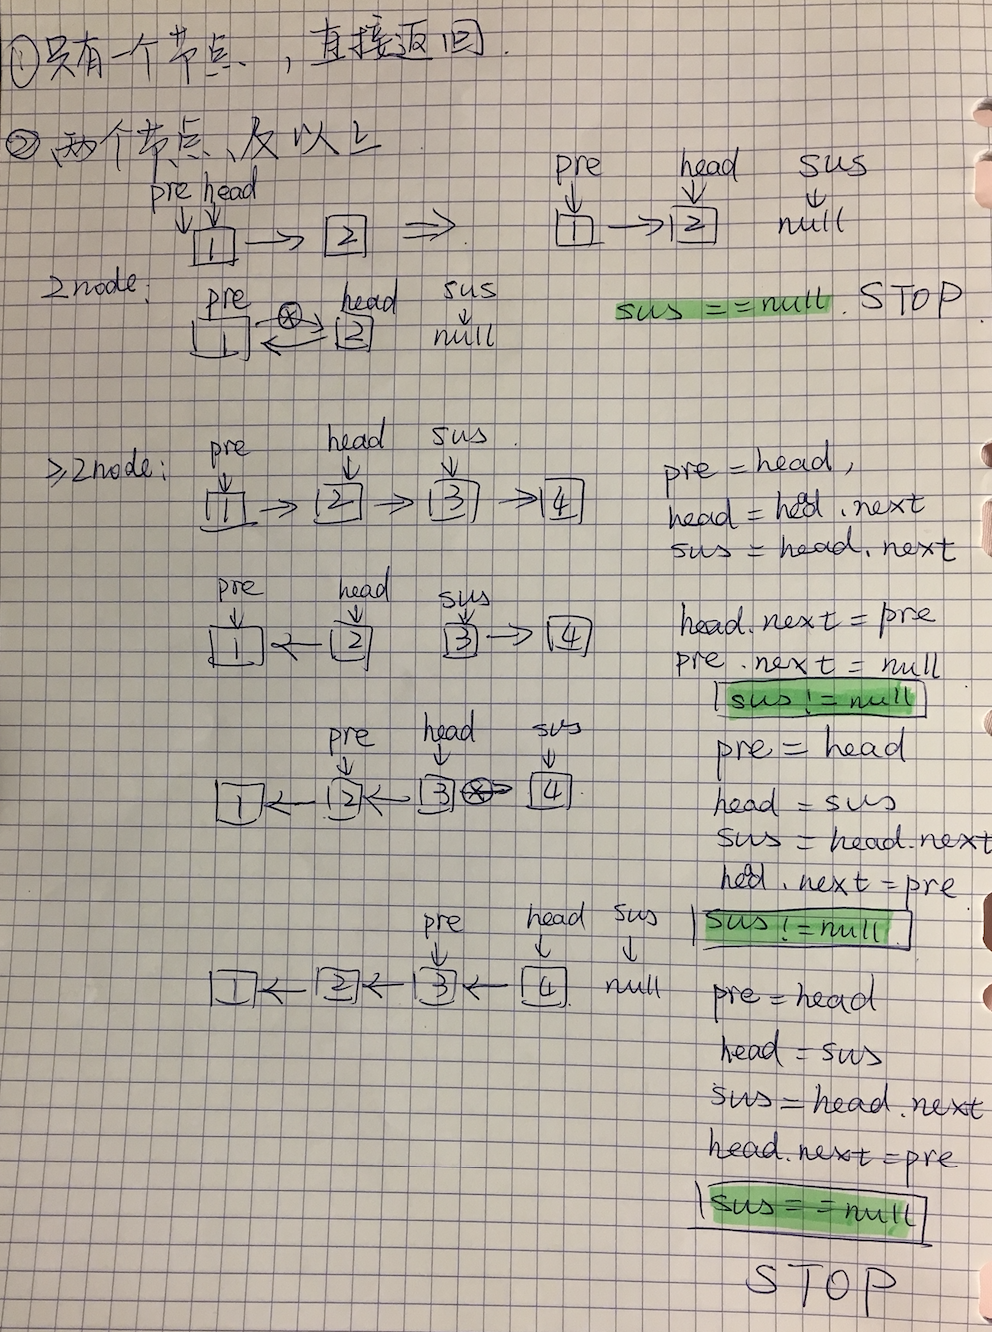 ①只有一个节点,直接返回.
②两个节点及以上
pre head
1 → 2 ⇒
pre head sus
1 → 2 null
2node:
pre head sus
1 2 null
sus == null. STOP
≥2node:
pre head sus
1 → 2 → 3 → 4
pre = head,
head = head.next
sus = head.next
pre head sus
1 ← 2 3 → 4
head.next = pre
pre.next = null
sus != null
pre head sus
1 ← 2 ← 3 4
pre = head
head = sus
sus = head.next
head.next = pre
sus != null
pre head sus
1 ← 2 ← 3 ← 4 null
pre = head
head = sus
sus = head.next
head.next = pre
sus == null
STOP